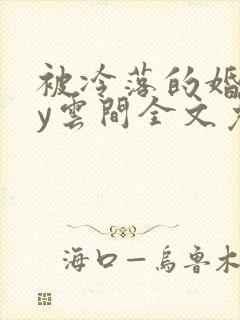 被冷落的婚
y雲間全文
海口—烏魯木